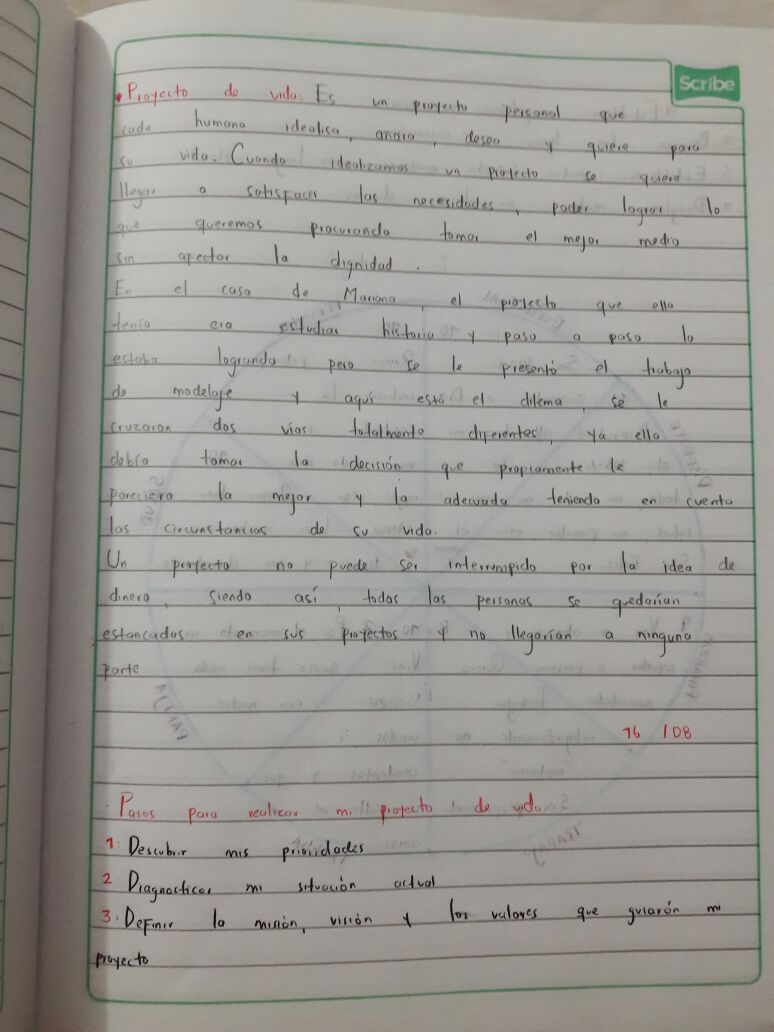 Scribe
• Proyecto de vida: Es un proyecto personal que
cada humano idealisa, añora, desea y quiere para
su vida. Cuando idealizamos un proyecto se quiere
llegar a satisfacer las necesidades, poder lograr lo
que queremos procurando tomar el mejor medio
sin afectar la dignidad.
En el caso de Mariana, el proyecto que ella
tenía era estudiar historia y paso a paso lo
estaba logrando pero se le presentó el trabajo
de modelaje y aquí está el dilema, se le
cruzaron dos vías totalmente diferentes, ya ella
debía tomar la decisión que propiamente le
pareciera la mejor y la adecuada teniendo en cuenta
las circunstancias de su vida.
Un proyecto no puede ser interrumpido por la idea de
dinero, siendo así, todas las personas se quedarían
estancadas en sus proyectos y no llegarían a ninguna
parte
16 / 08
• Pasos para realizar mi proyecto de vida
1. Descubrir mis prioridades
2 Diagnosticar mi situación actual
3. Definir la misión, visión y los valores que guiarán mi
proyecto